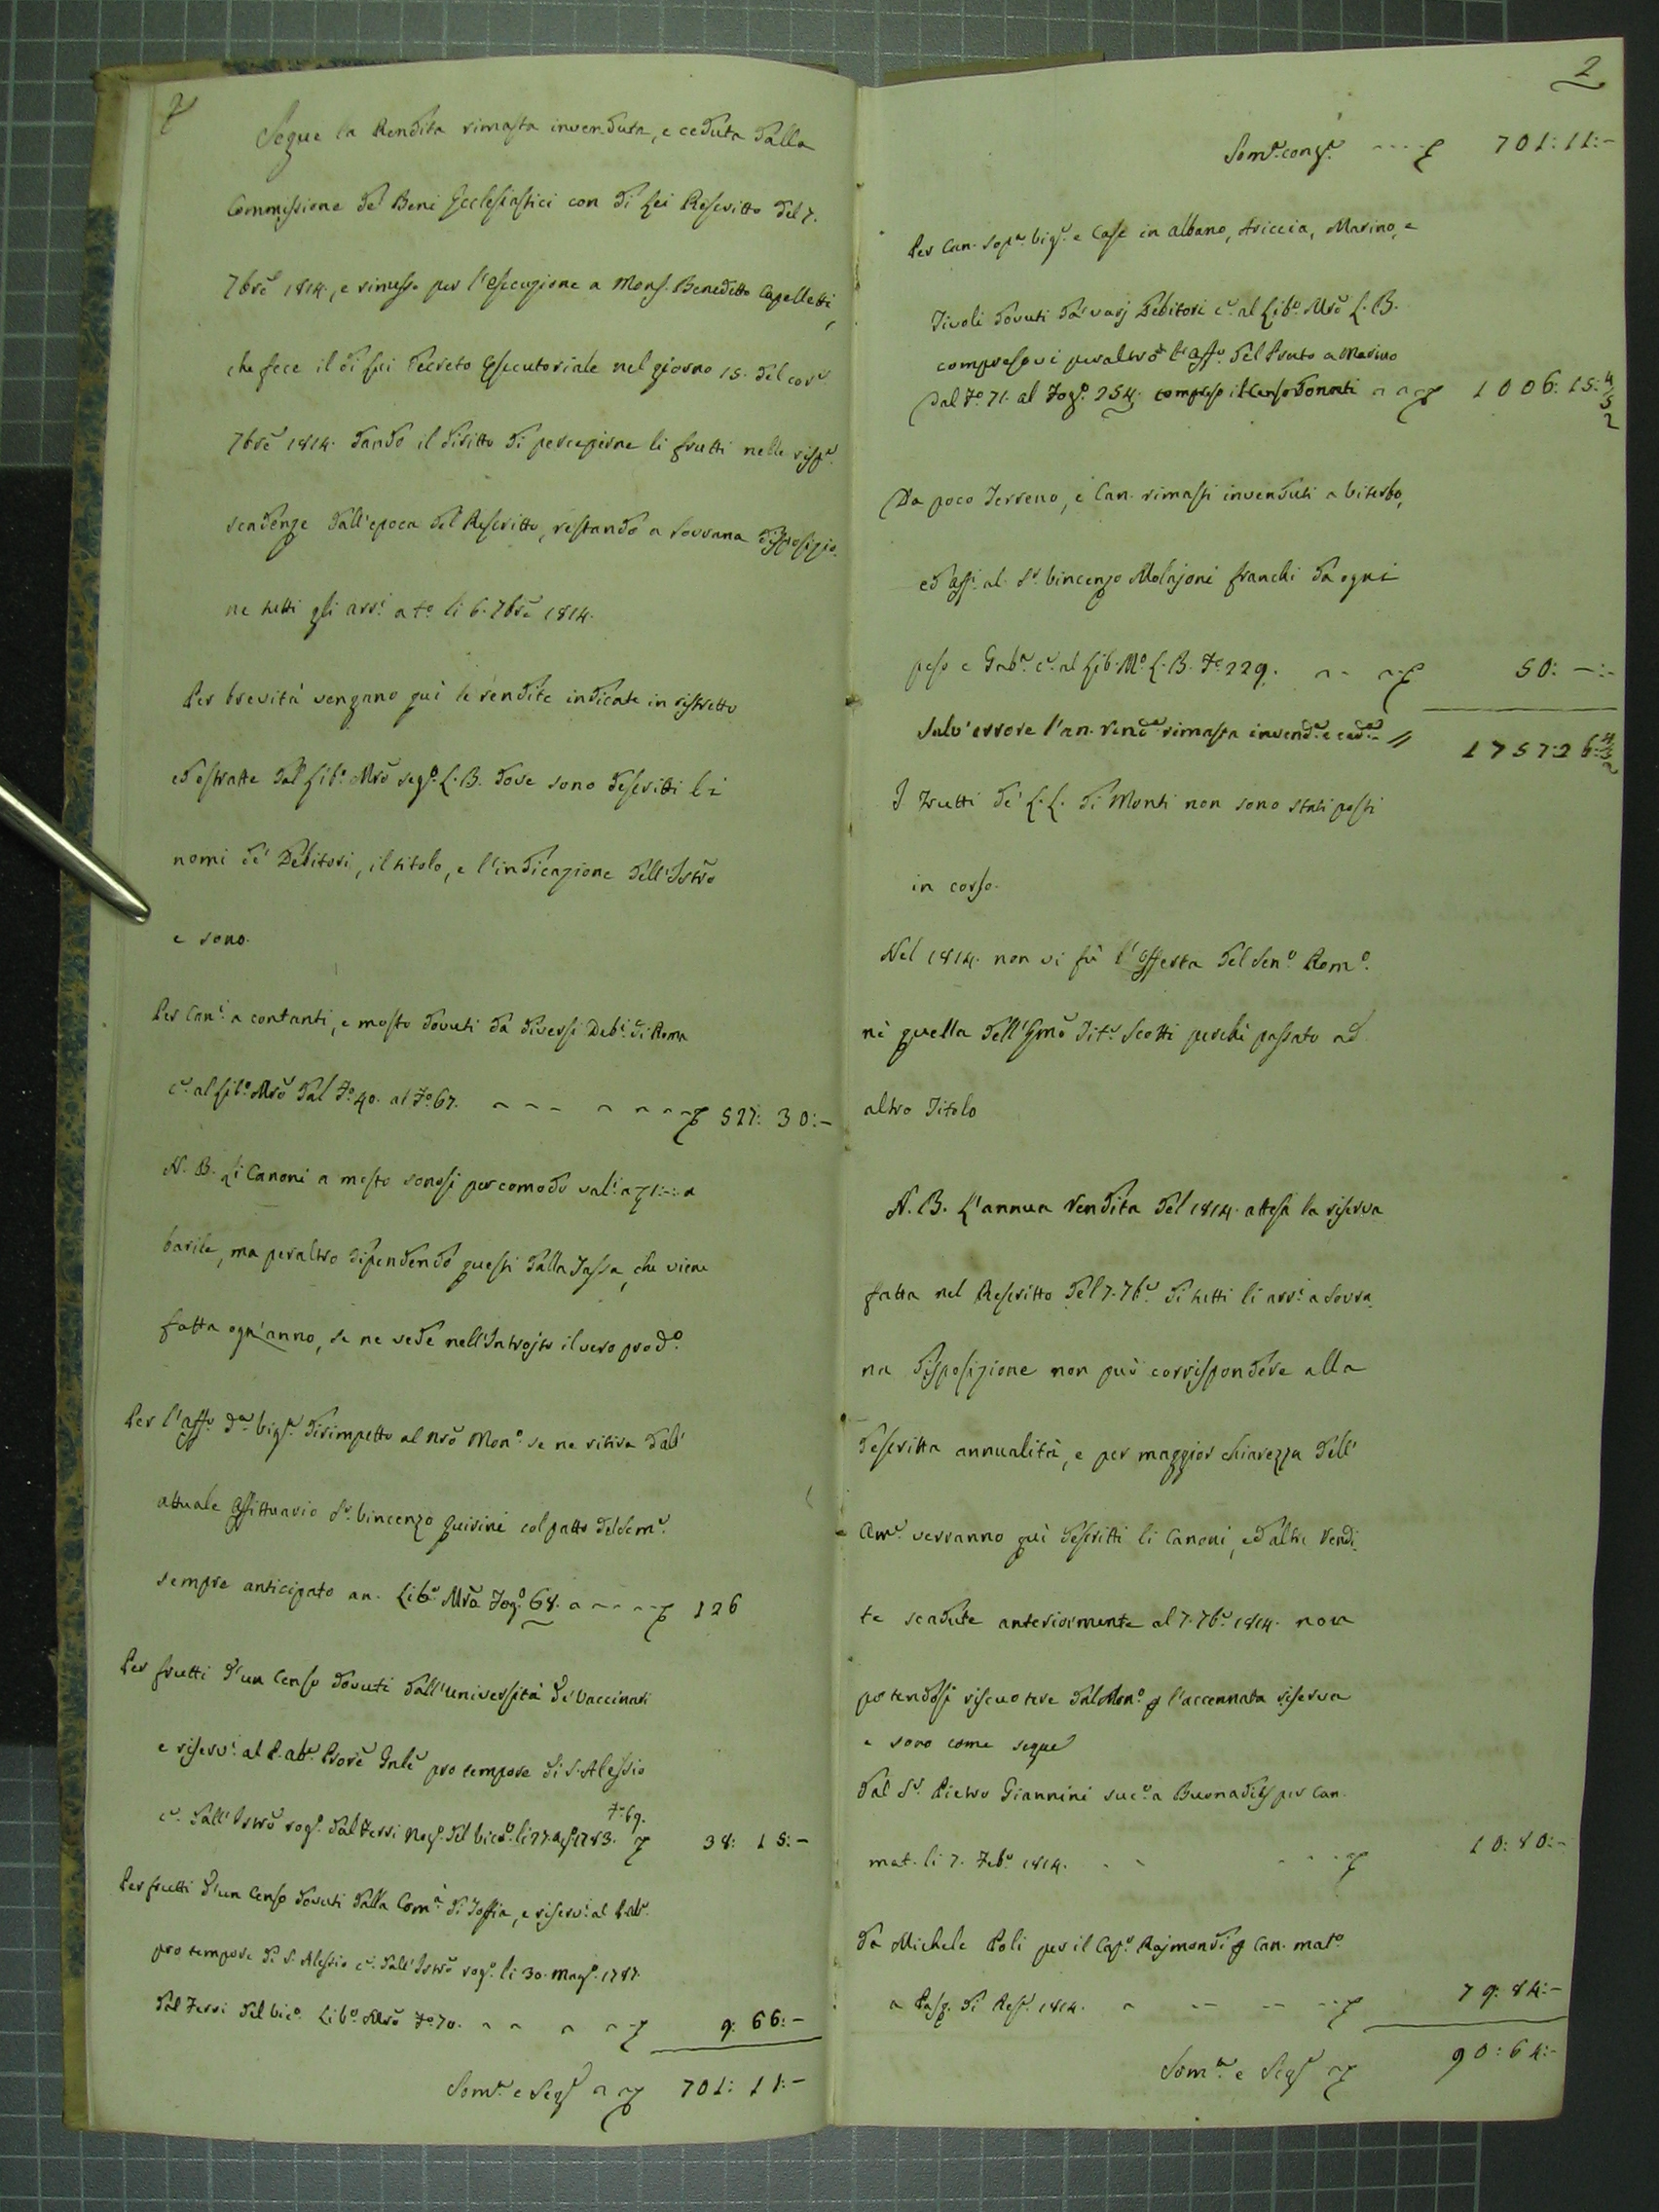 Segue la Rendita rimasta invenduta, e ceduta dalla
Commissione de' Beni Ecclesiastici con di Lei Rescritto del 7.
7bre 1814., e rimesso per l'esecuzione a Mons. Benedetto Capelletti,
che fece il di lui Decreto Esecutoriale nel giorno 15. del corr.
7bre 1814. dando il diritto di percepirne li frutti nelle risp.e
scadenze dall'epoca del Rescritto, restando a Sovrana disposizio
ne tutti gli arr.i a t.o li 6. 7bre 1814.
Per brevità vengano quì le rendite indicate in ristretto
ed estratte dal Lib.o Mro seg.o L. B. dove sono descritti li
nomi de' Debitori, il titolo, e l'indicazione dell'Istro
e sono.
Per Can.i a contanti, e mosto dovuti da diversi Deb.i di Roma
c.e al Lib.o Mro dal Fo. 40. al Fo. 67. 527: 30:-
N. B. Li Canoni a mosto sonosi per comodo val.i a 1:-: a
barile, ma peraltro dipendendo questi dalla Tassa, che viene
fatta ogn'anno, se ne vede nell'Introito il vero prod.o
Per l'aff.o d.a Vig.a dirimpetto al nro Mon.o se ne ritira dall'
attuale affittuario Sr. Vincenzo Quirini col patto del sem.e
sempre anticipato an. Lib.o Mro Fog.o 68. 126
Per frutti d'un Censo dovuti dall'università de' Vaccinari
e riserv.i al P. Ab.e Prore Gnle pro tempore di S. Alessio
c.e dall'Istro rog.o dal Ferri Not.o del Vic.o li 27. ag.o 1783. Fo. 69. 38: 15:-
Per frutti d'un Censo dovuti dalla Com.à di Toffia, e riserv.i al P. Ab.e
pro tempore di S. Alessio c.e dall'Istro rog.o li 30. Mag.o 1787.
dal Ferri del Vic.o Lib.o Mro Fo. 70. 9: 66:-
Som.a e Seg.e 701: 11:-
2
Som.a cong.a 701: 11:-
Per Can. sop.a Vig.e e Case in Albano, Ariccia, Marino, e
Tivoli dovuti da varj Debitori c.e al Lib.o Mro L. B.
compresovi peraltro l'aff.o del Prato a Marino
Dal Fo. 71. al Fog.o 254. compreso il Censo Donati 1006: 15: 4/5 2
Da poco Terreno, e Can. rimasti invenduti a Viterbo,
ed aff.i al Sr. Vincenzo Molajoni franchi da ogni
peso e Gab.a c.e al Lib. M.o L. B. Fo. 229. 50: -:-
Salv'errore l'an. rend.a rimasta invend.a e ced.a 1757: 26: 4/5 2
I frutti de' L. L. di Monti non sono stati posti
in corso.
Nel 1814. non vi fù l'offerta del Sen.o Rom.o
nè quella dell'Emo Tit.e Scotti perchè passato ad
altro Titolo
N. B. L'annua rendita del 1814. attesa la riserva
fatta nel Rescritto del 7. 7b.e di tutti li arr.i a Sovra
na disposizione non può corrispondere alla
descritta annualità, e per maggior chiarezza dell'
Am.e verranno quì descritti li Canoni, ed altre rendi
te scadute anteriormente al 7. 7b.e 1814. non
potendosi riscuotere dal Mon.o p l'accennata riserva
e sono come segue
Dal Sr. Pietro Giannini suc.e a Buonadies per Can.
mat. li 7. Feb.o 1814. 10: 80:-
Da Michele Poli per il Cap.o Rajmondi p Can. mat.o
a Pasq. di Res. 1814. 79: 84:-
Som.a e Seg.e 90: 64:-